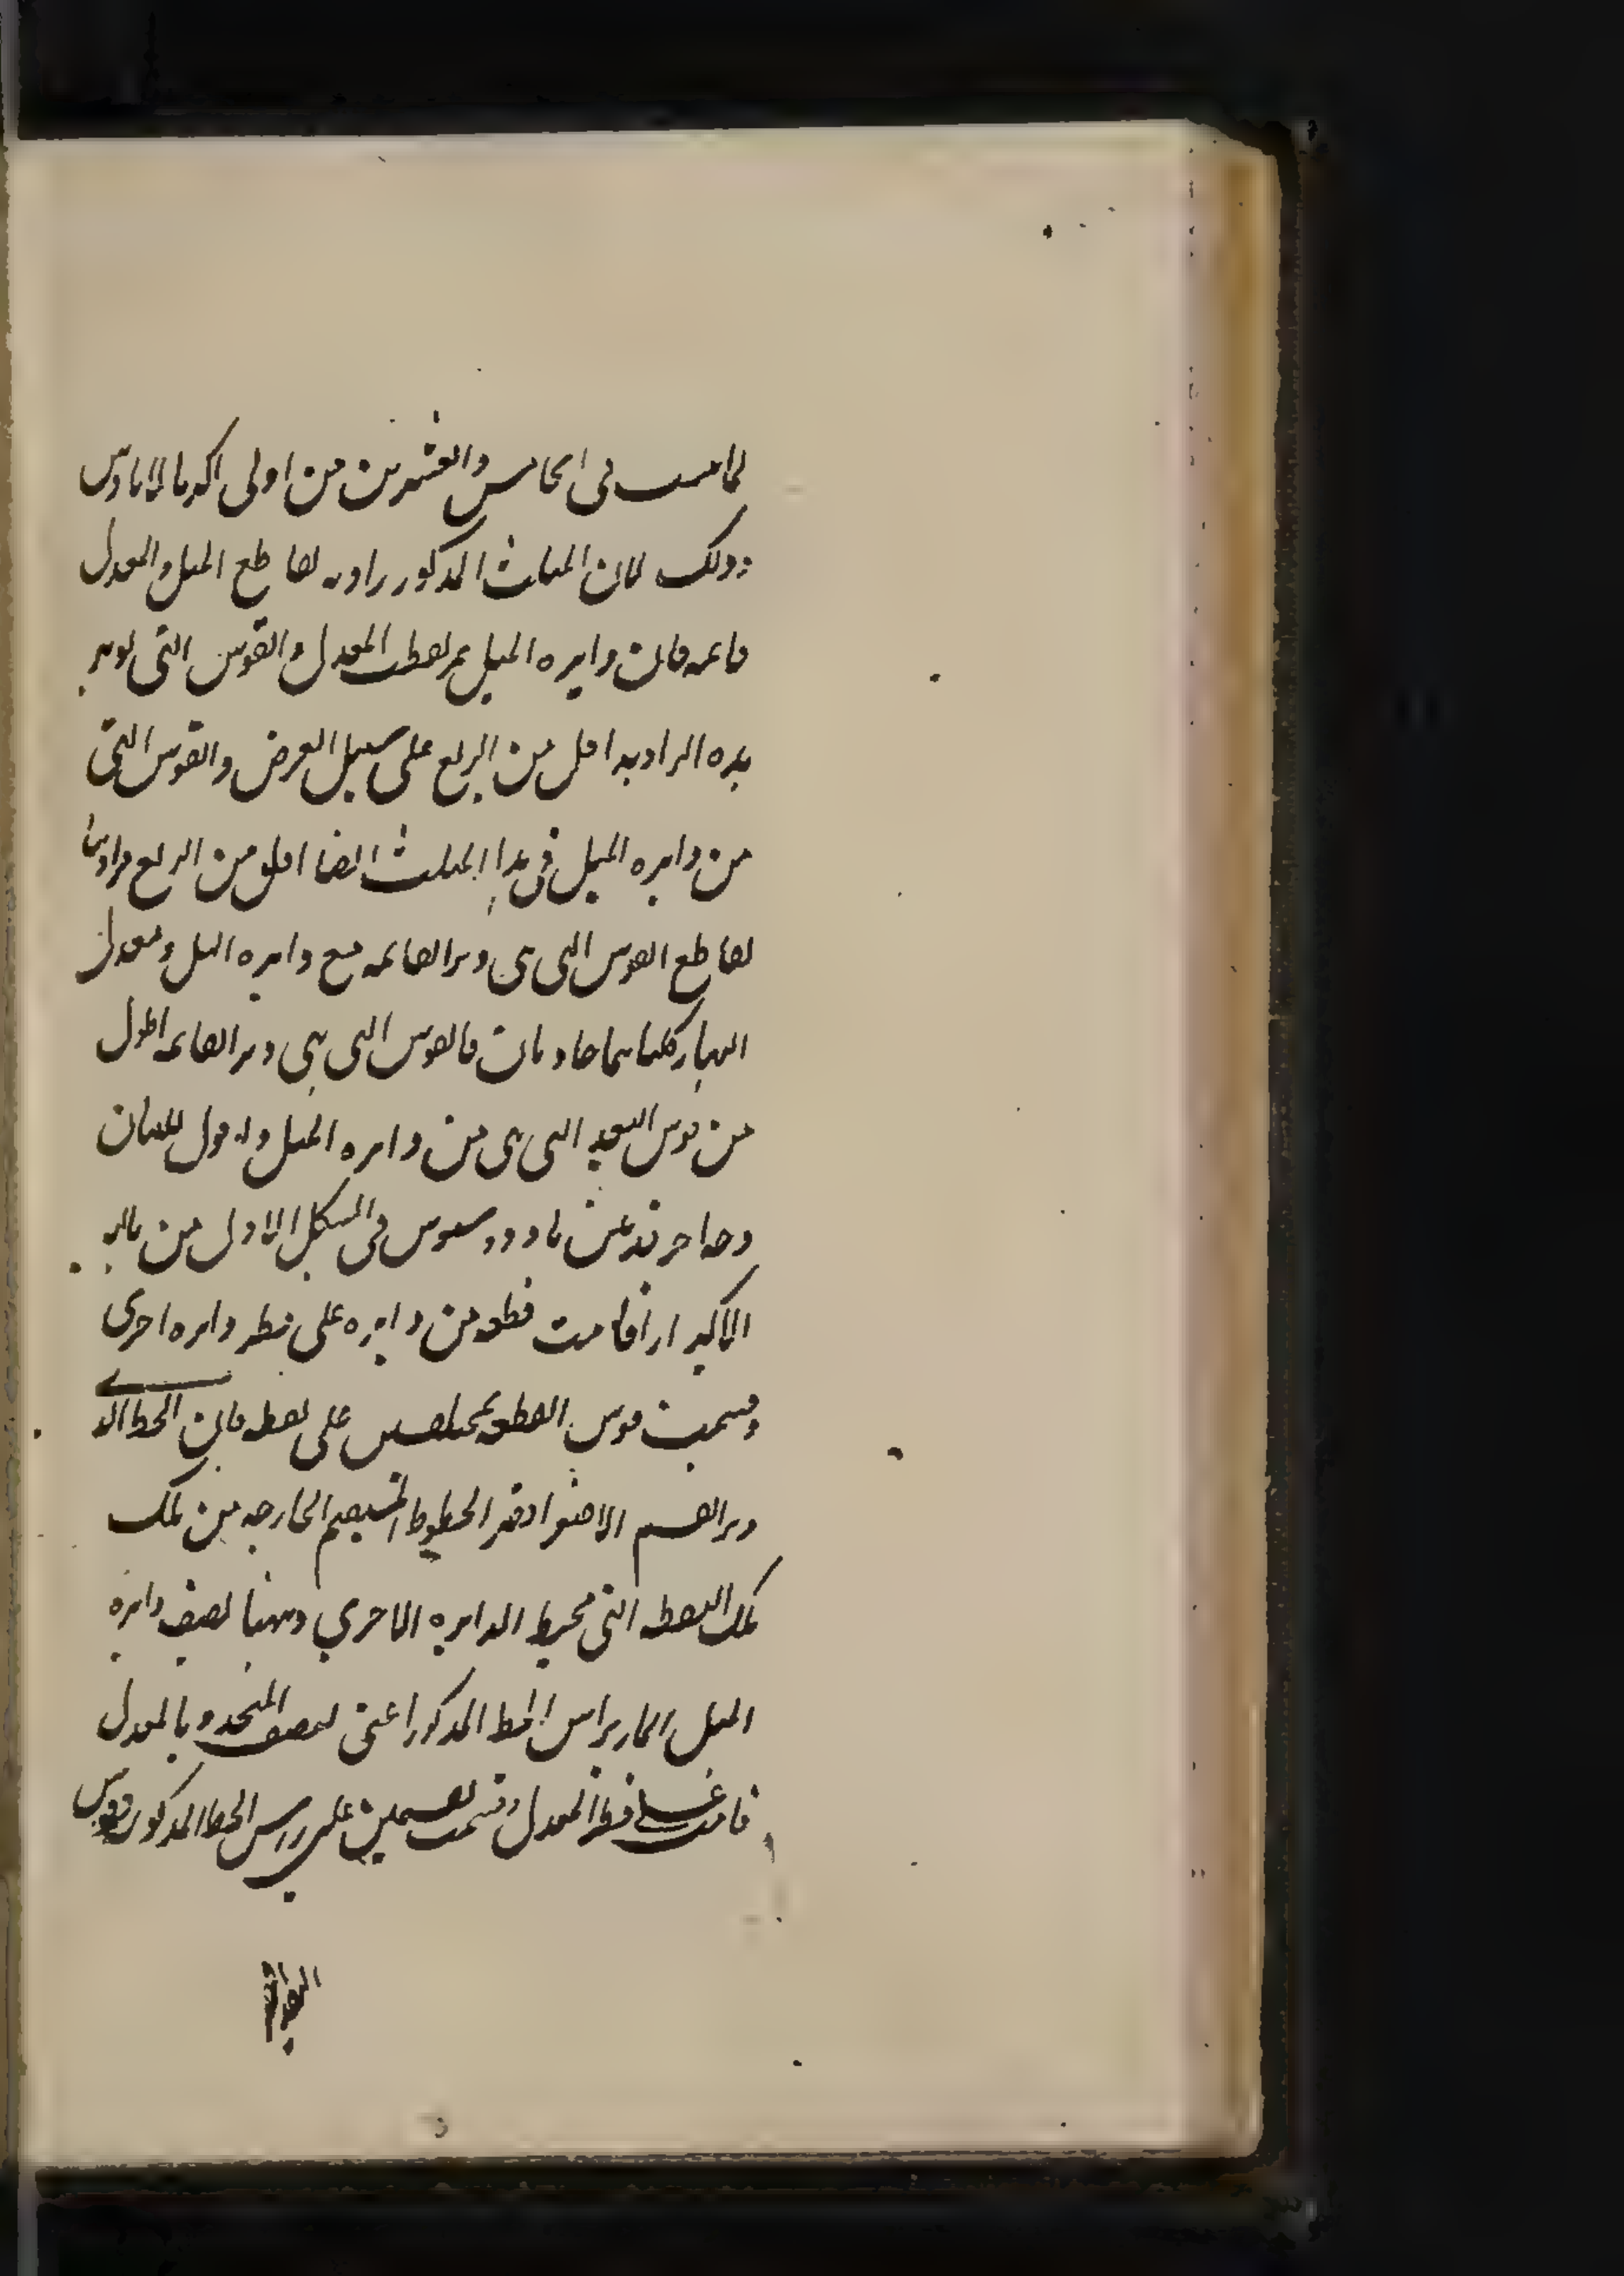 لما ثبت فی الخامس والعشرین من اولی اکر مالاناوس
وذلک لان المثلث المذکور زاویه تقاطع المیل والمعدل
قائمه فان دایره المیل تمر بقطب المعدل والقوس التی توتر
هذه الزاویه اقل من الربع علی سبیل العرض والقوس التی
من دایره المیل فی هذا المثلث ایضا اقل من الربع فزاویتا
تقاطع القوس التی هی وتر القائمه مع دایره المیل ومعدل
النهار کلتاهما حادتان فالقوس التی هی وتر القائمه اطول
من قوس البعد التی هی من دایره المیل ولنا فی البیان
وجه اخر قد بین ثاودوسیوس فی الشکل الاول من ثالثه
الاکر اذا قامت قطعه من دایره علی قطر دایره اخری
وقسمت قوس القطعه بمختلفین علی نقطه فان الخط الذی
وتر القسم الاصغر اقصر الخطوط المستقیم الخارجه من تلک
تلک النقطه التی محیط الدایره الاخری وههنا نصف دایره
المیل المار براس الخط المذکور اعنی النصف المحدود بالمعدل
قامت علی قطر المعدل وقسمت بقسمین علی راس الخط المذکور وقوس